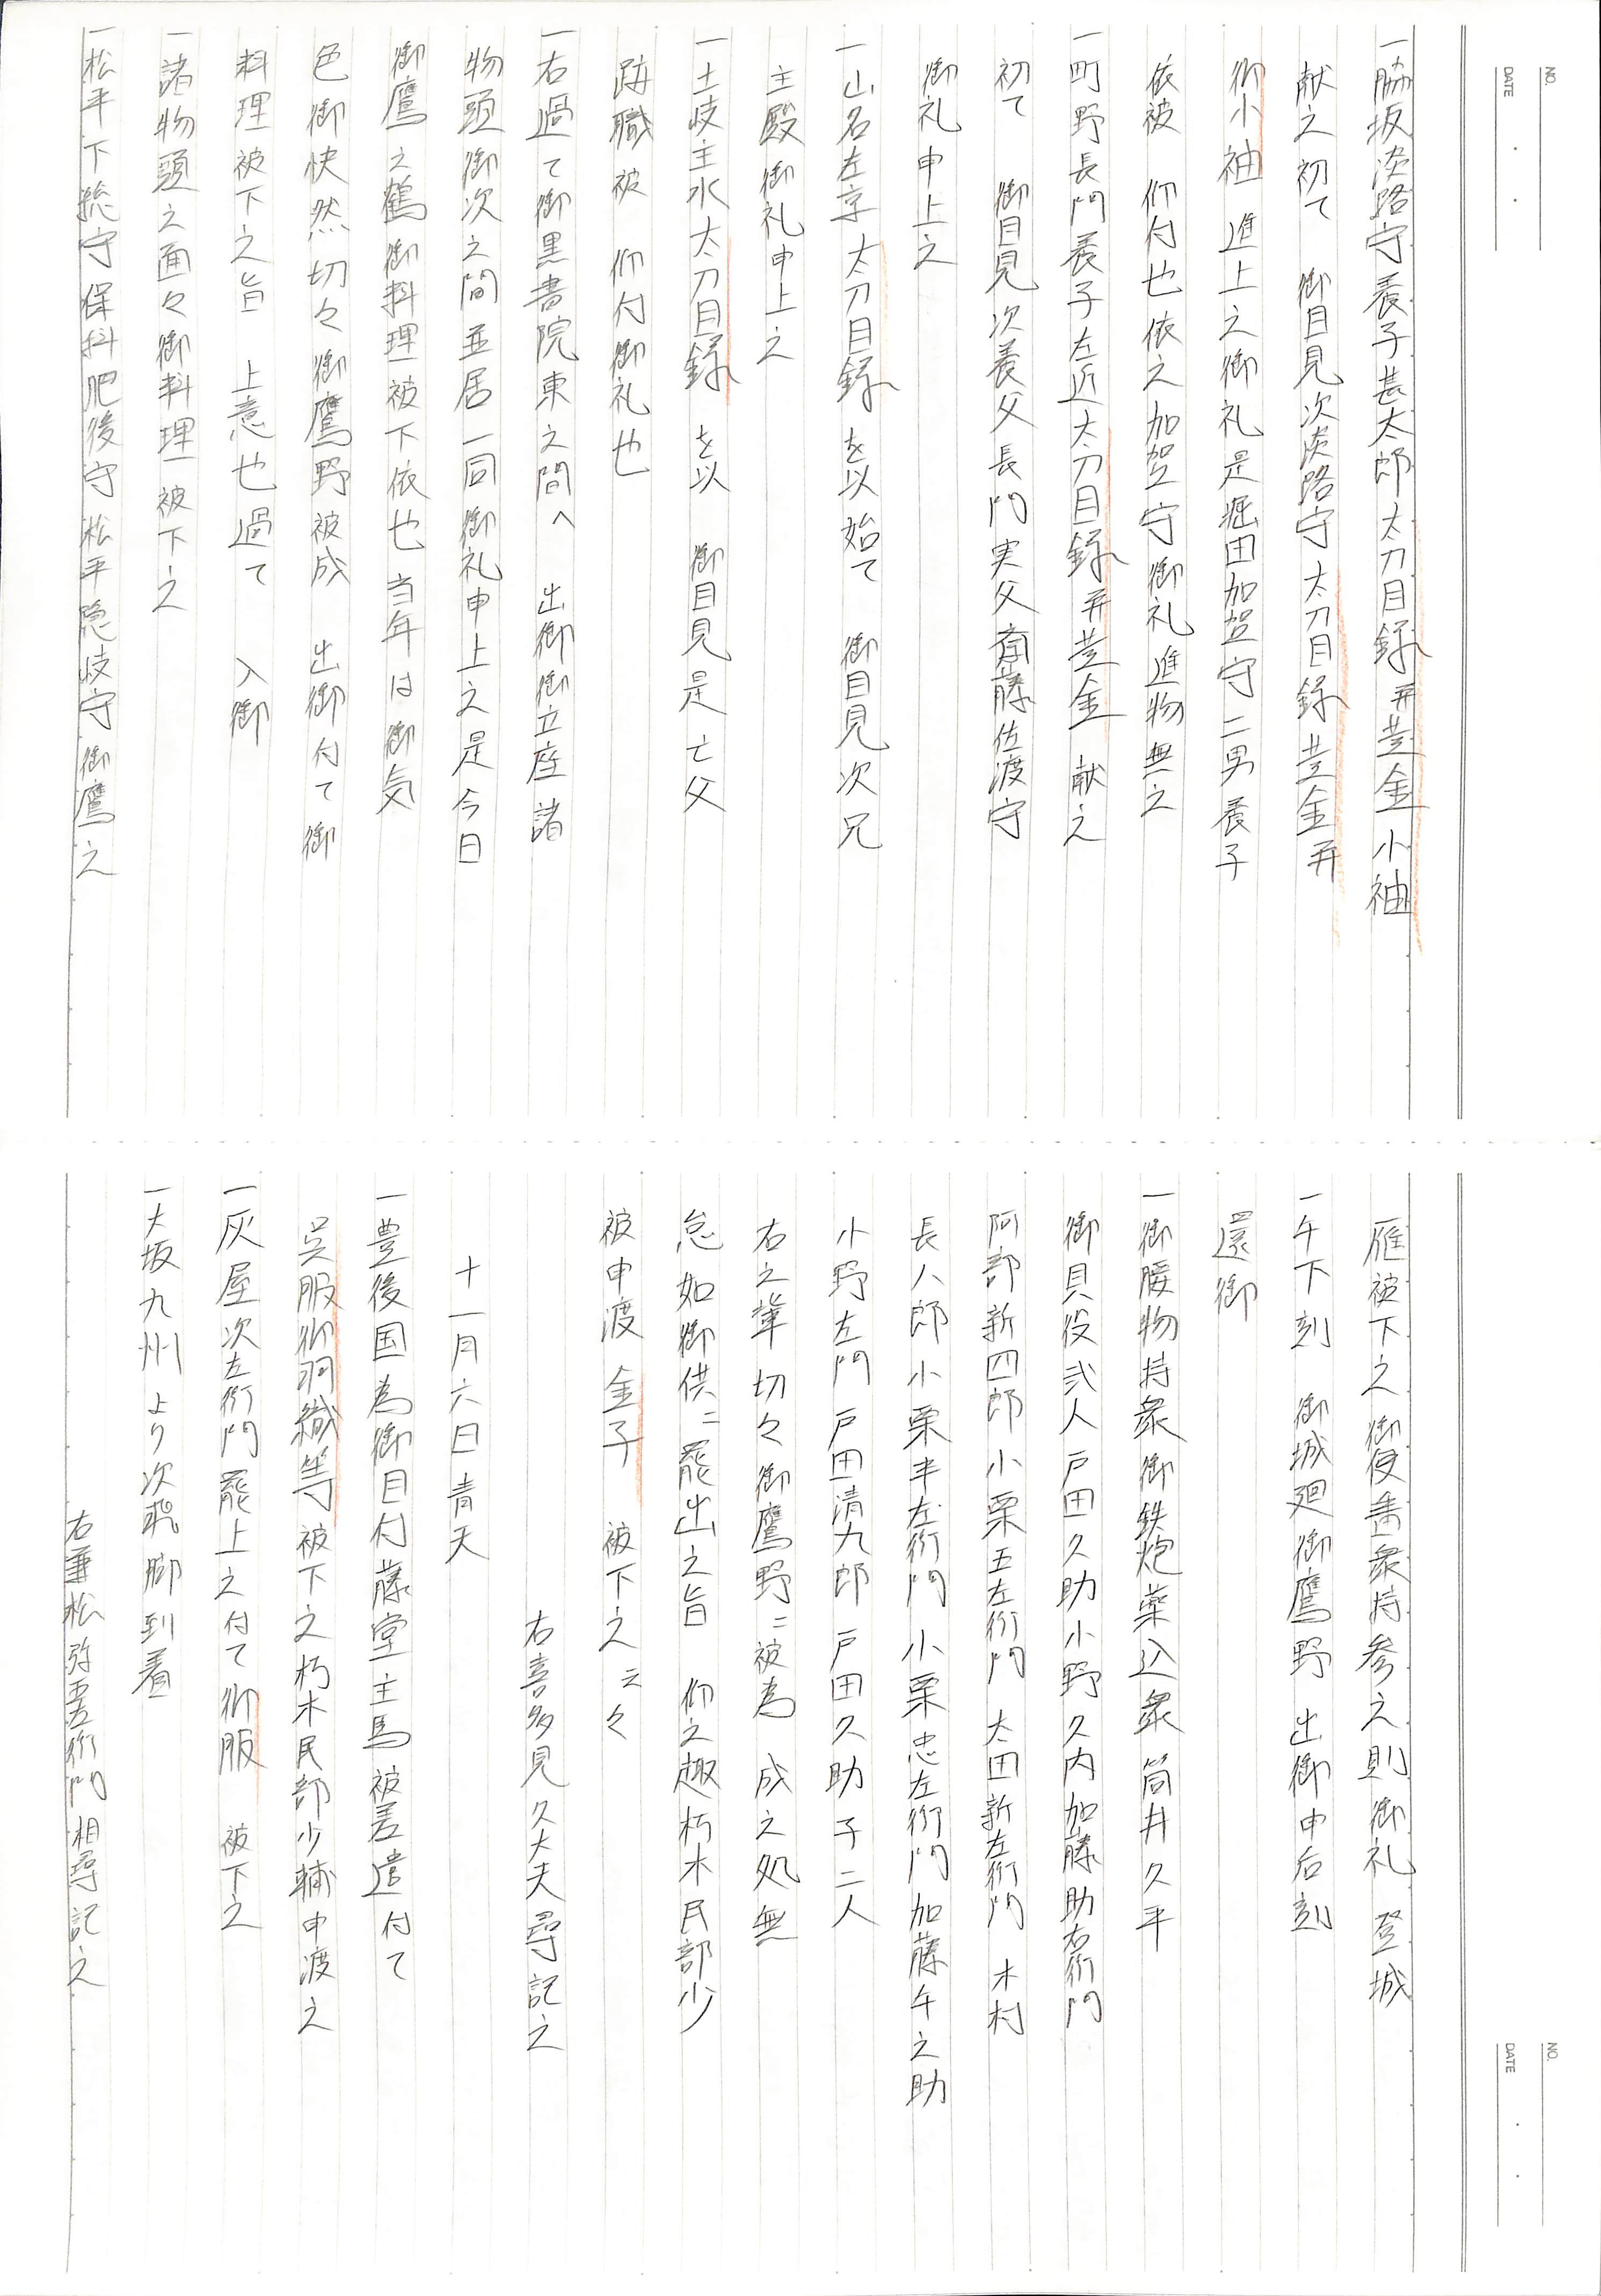 NO.
DATE
一脇坂淡路守養子甚太郎太刀目録幷黄金小袖
献之初て 御目見次淡路守太刀目録黄金幷
御小袖進上之御礼是堀田加賀守二男養子
依被 仰付也依之加賀守御礼進物無之
一町野長門養子左近太刀目録幷黄金献之
初て 御目見次養父長門実父斎藤佐渡守
御礼申上之
一山名左京太刀目録を以始て 御目見次兄
主殿御礼申上之
一土岐主水太刀目録を以 御目見是亡父
跡職被 仰付御礼也
一右過て御黒書院東之間へ 出御御立座諸
物頭御次之間並居一同御礼申上之是今日
御鷹之鶴御料理被下依也当年は御気
色御快然切々御鷹野被成 出御付て御
料理被下之旨 上意也過て 入御
一諸物頭之面々御料理被下之
一松平下総守保科肥後守松平隠岐守御鷹之
NO.
DATE
雁被下之御使番衆持参之則御礼 登城
一午下刻 御城廻御鷹野 出御申后刻
還御
一御腰物持衆御鉄炮薬込衆筒井久平
御貝役弐人戸田久助小野久内加藤助右衛門
阿部新四郎小栗五左衛門 太田新左衛門 木村
長八郎小栗半左衛門 小栗忠左衛門加藤午之助
小野左門 戸田清九郎 戸田久助子二人
右之輩切々御鷹野ニ被為 成之処無
怠如御供ニ罷出之旨 仰之趣朽木民部少
被申渡金子 被下之云々
右喜多見久大夫尋記之
十一月六日青天
一豊後国為御目付藤堂主馬被差遣付て
呉服御羽織等被下之朽木民部少輔申渡之
一灰屋次左衛門罷上之付て御服 被下之
一大坂九州より次飛脚到着
右兼松弥五左衛門相尋記之